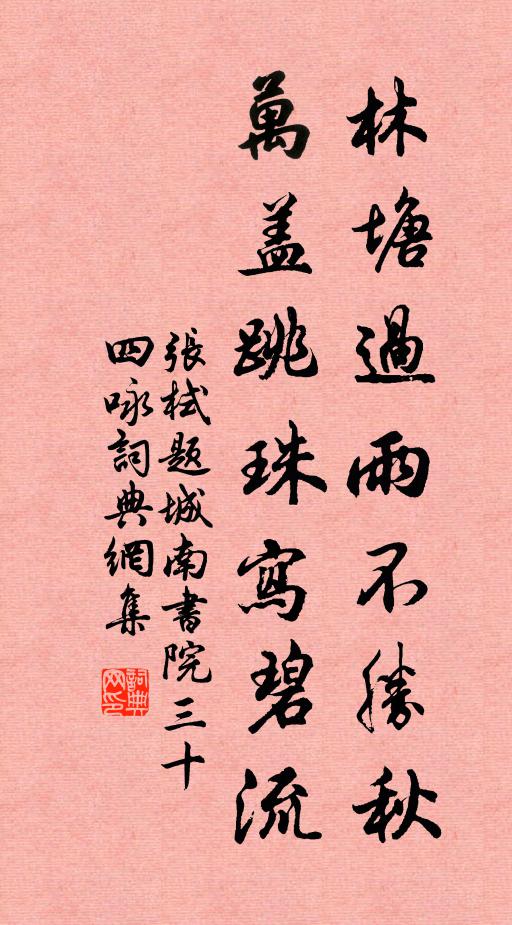 林塘過雨不勝秋
萬盖跳珠寫碧流
張栻題城南書院三十
四咏詞典網集
詞典網印